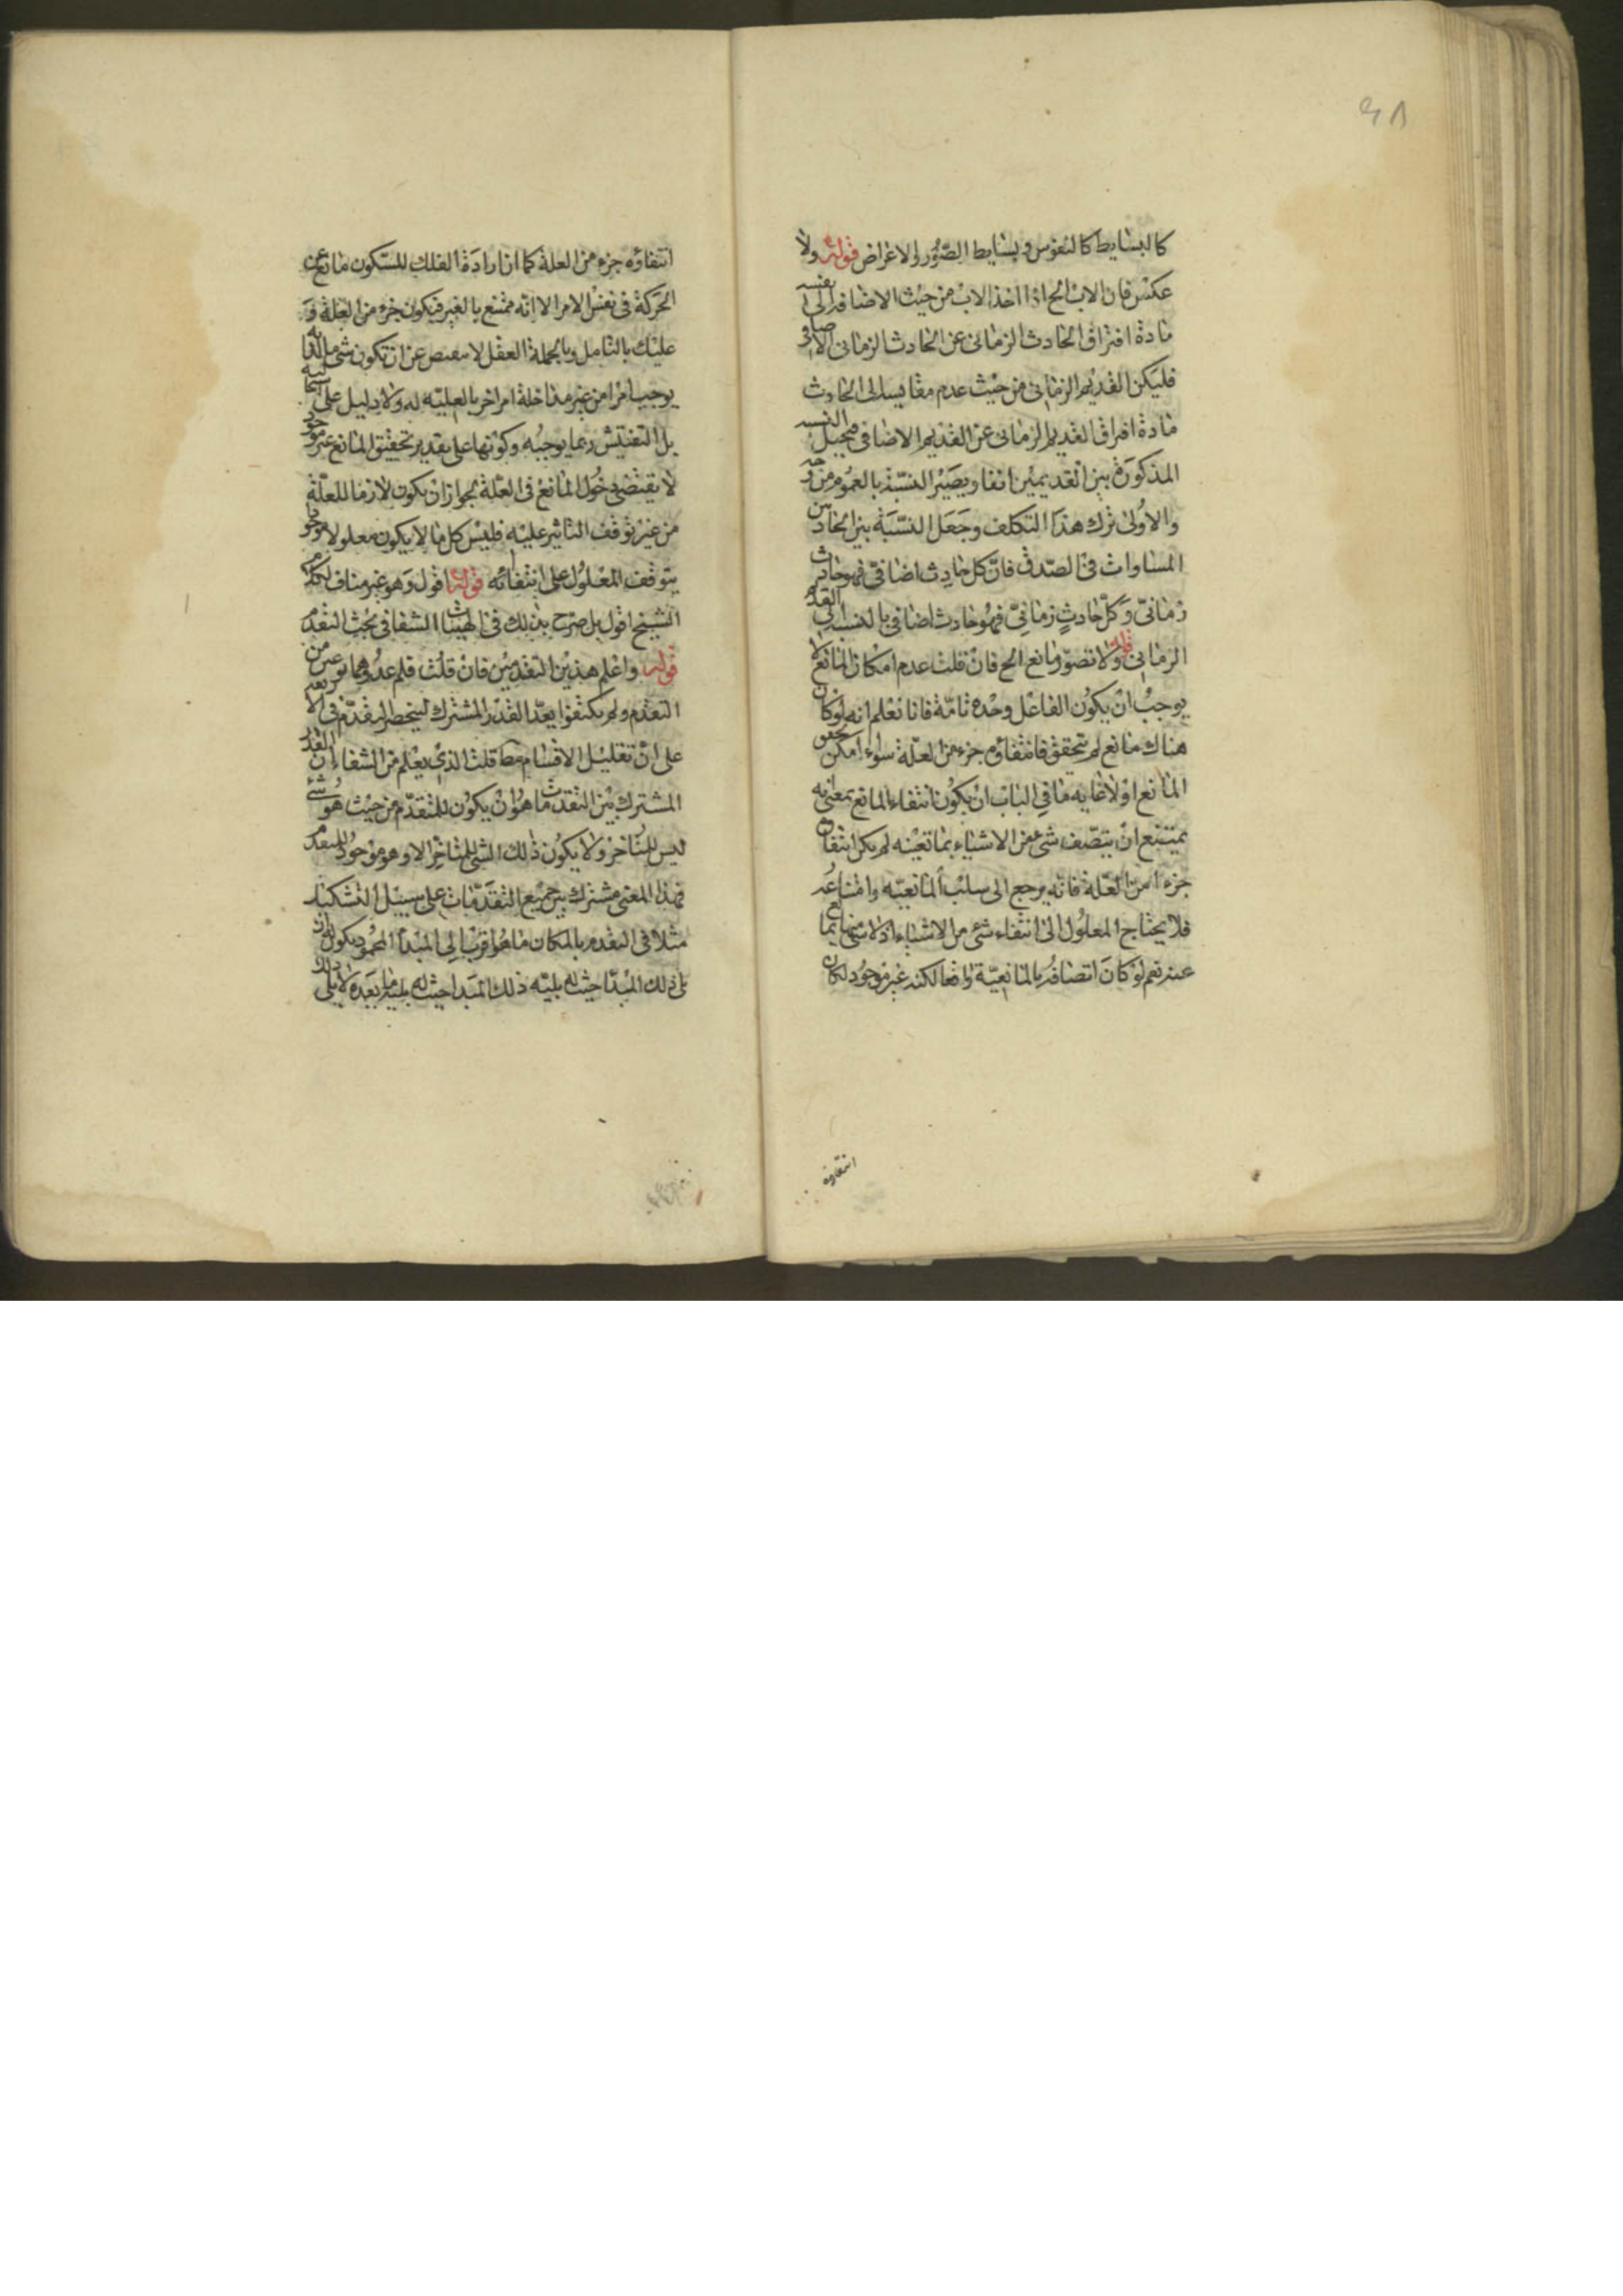 ٤٨
كالبسايط كالنفوس وبسايط الصور والاعراض قوله ولا
عكس فان الاب الخ اذا اخذ الاب من حيث الاضافة الى نفسه
مادة افتراق الحادث الزمانى عن الحادث الزمانى الاضافى
فليكن القديم الزمانى من حيث عدم مقايسه الى الحادث
مادة افتراق القديم الزمانى عن القديم الاضافى فيختل النسبه
المذكورة بين القديمين انفا ويصير النسبة بالعموم من وجه
والاولى ترك هذا التكلف وجعل النسبة بين الحادثين
المساوات فى الصدق فان كل حادث اضافى فهو حادث
زمانى وكل حادث زمانى فهو حادث اضافى بالنسبه الى القديم
الزمانى قوله ولا تصور مانع الخ فان قلت عدم امكان المانع لا
يوجب ان يكون الفاعل وحده تامة فانا نعلم انه لو كان
هناك مانع لم يتحقق فانتفاؤه جزء من العلة سواء امكن تحقق
المانع اولا غايه ما فى الباب ان يكون انتفاء المانع بمعنى انه
يمتنع ان يتصف شئ من الاشياء بمانعيته لم يكن انتفاؤه
جزءا من العلة فانه يرجع الى سلب المانعيه وامتناعه
فلا يحتاج المعلول الى انتفاء شئ من الاشياء اذ لا شئ منها بمانع
عنه نعم لو كان اتصافه بالمانعية واقعا لكنه غير موجود لكان
انتفاؤه
انتفاؤه جزء من العلة كما ان ارادة الفلك للسكون مانع عن
الحركة فى نفس الامر الا انه ممتنع بالغير فيكون جزء من العلة و
عليك بالتامل وبالجملة العقل لا عن ان تكون شئ ما لذاته
يوجب امرا من غير مداخلة امر اخر بالعلية له ولا دليل على
بل التفتيش ربما يوجبه وكونها على تقدير تحقيق المانع غير موجود
لا يقتضى دخول المانع فى العلة لجواز ان يكون لازما للعلة
من غير توقف التاثير عليه فليس كل ما لا يكون معلولا موجودا
يتوقف المعلول على انتفائه قوله اقول وهو غير مناف لكلام
الشيخ اقول بل صرح بذلك فى الهيات الشفا فى بحث التقدم
قوله واعلم هذين التقدمين فان قلت فلم عدوهما نوعين من
التقدم ولم يكتفوا بعد القدر المشترك لينحصر التقدم فى الاربعه
على ان تقليل الاقسام قلت الذى يعلم من الشفاء ان القدر
المشترك بين التقدمات ما هو ان يكون للمتقدم من حيث هو شئ
ليس للمتاخر ولا يكون ذلك الشئ للمتاخر الا وهو موجود للمتقدم
فهذا المعنى مشترك بين جميع التقدمات على سبيل التشكيك
مثلا فى التقدم بالمكان ما هو اقرب الى المبدأ المحدود يكون له ان
يلى ذلك المبدا حيث لا يليه ذلك المبدا حيث لا يليه ما بعده لا يلى ذلك